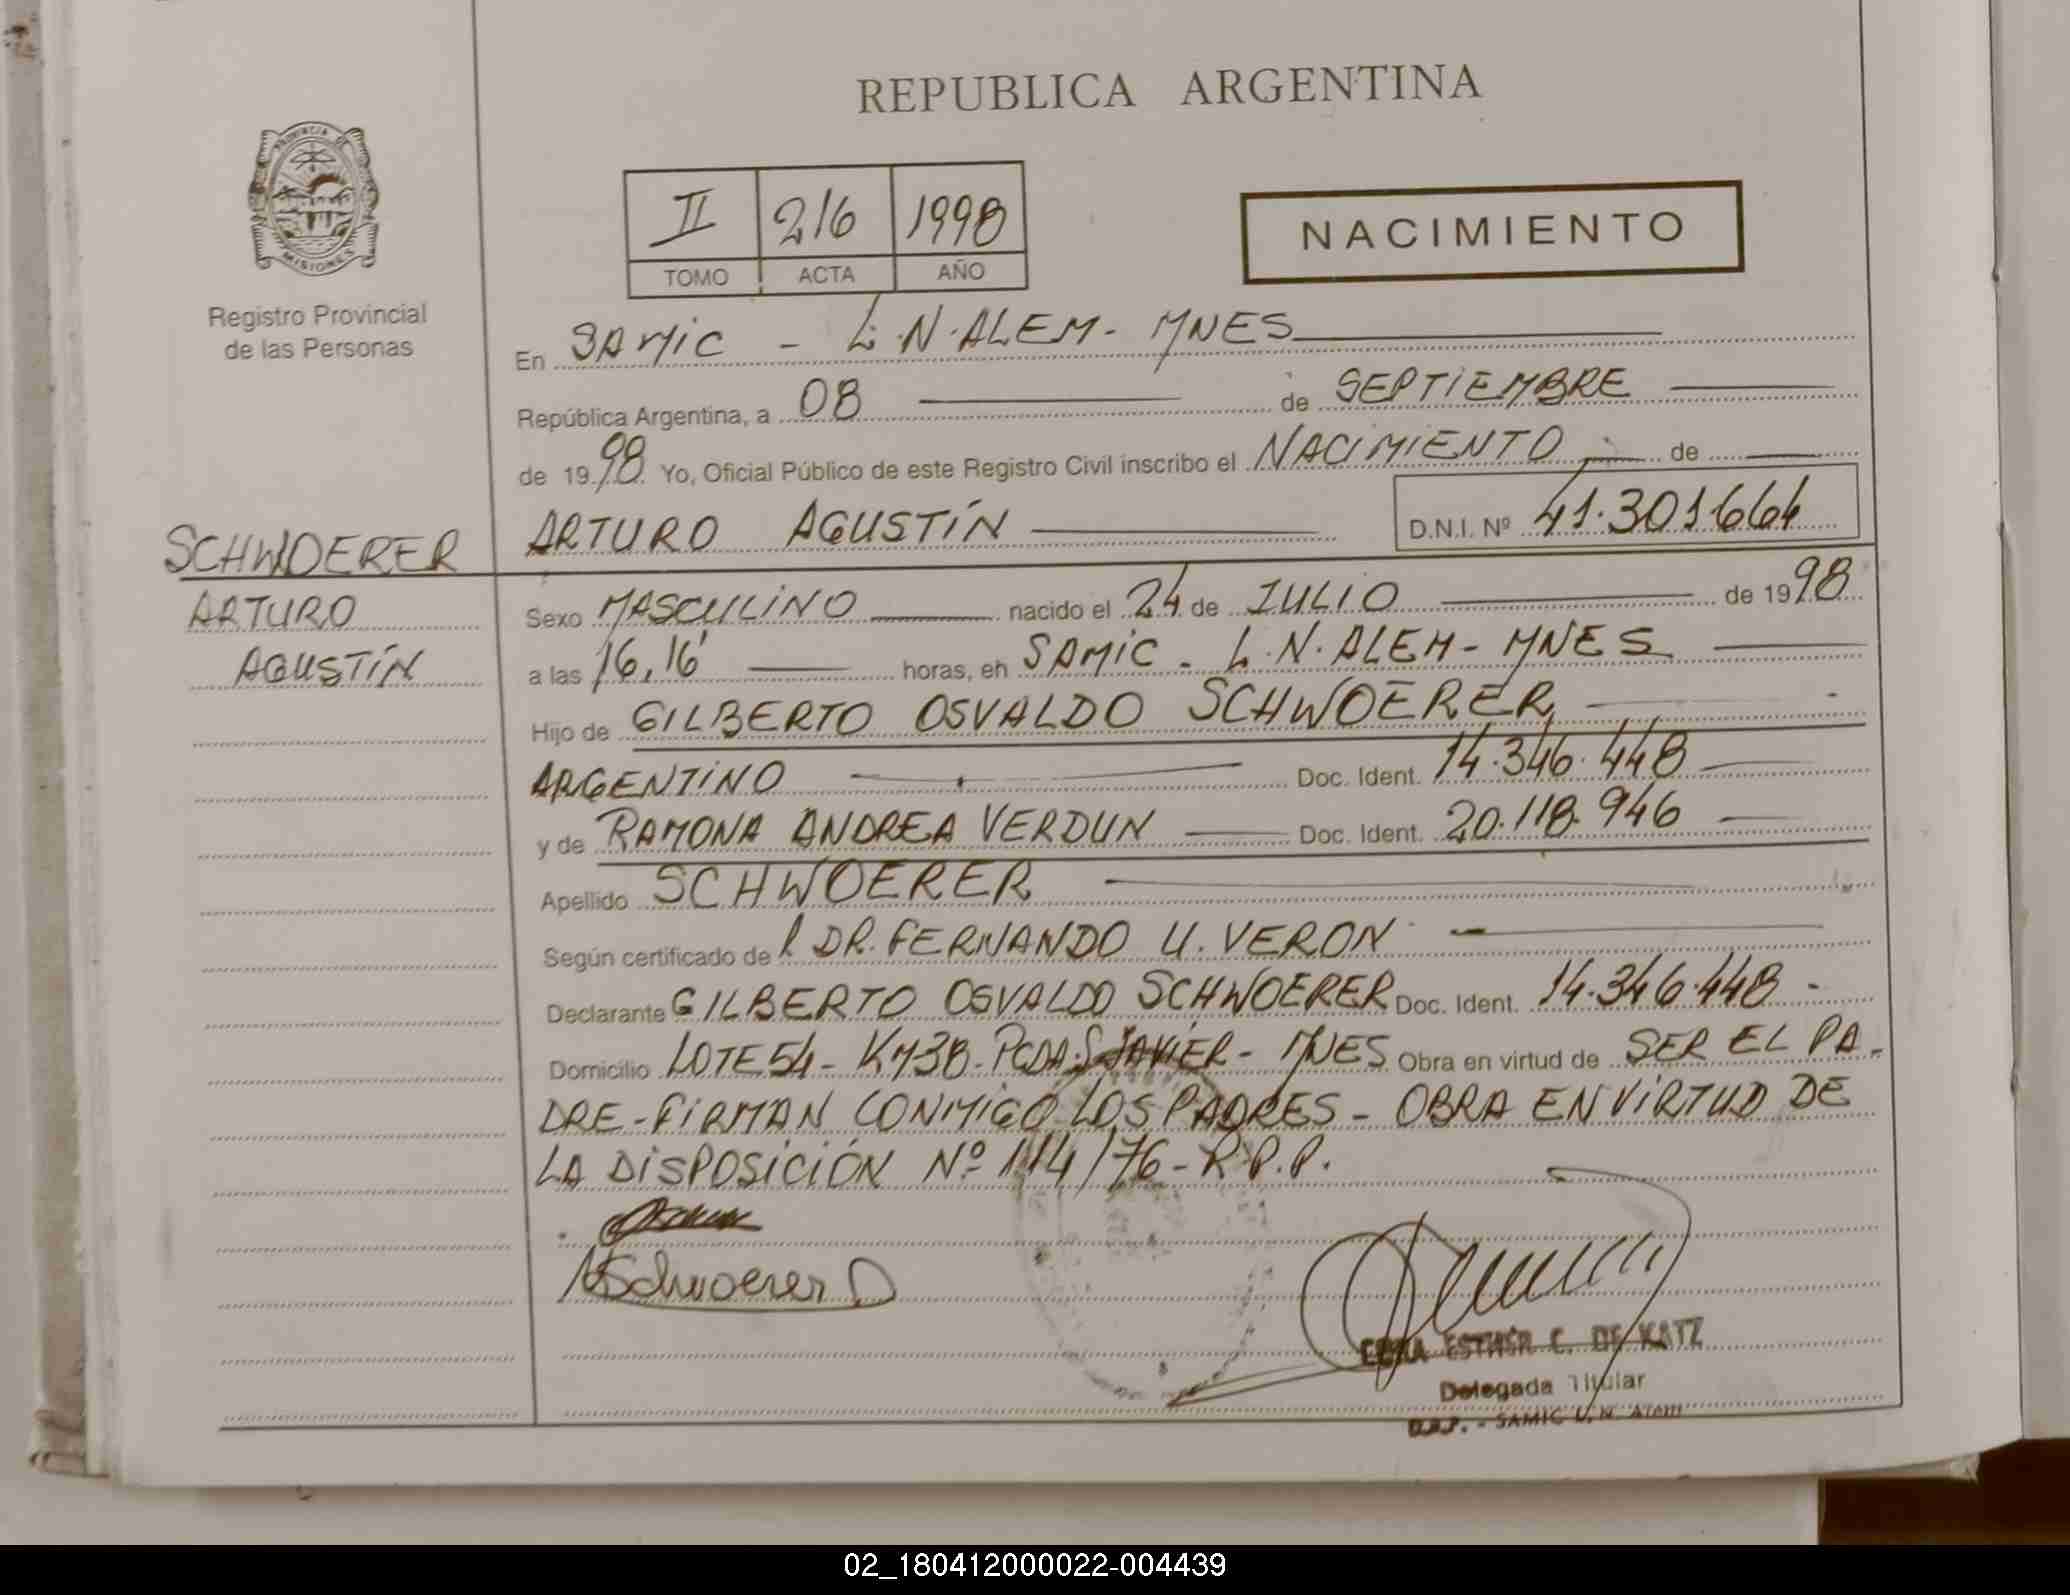 REPUBLICA ARGENTINA
PROVINCIA DE MISIONES
Registro Provincial
de las Personas
II 216 1998
TOMO ACTA AÑO
NACIMIENTO
En SAMIC - L.N.ALEM- MNES
República Argentina, a 08 de SEPTIEMBRE
de 1998 Yo, Oficial Público de este Registro Civil inscribo el NACIMIENTO de
ARTURO AGUSTÍN D.N.I. Nº 41.301664
SCHWOERER
ARTURO
AGUSTÍN
Sexo MASCULINO nacido el 24 de JULIO de 1998
a las 16,16' horas, en SAMIC - L.N.ALEM- MNES
Hijo de GILBERTO OSVALDO SCHWOERER
ARGENTINO Doc. Ident. 14.346.448
y de RAMONA ANDREA VERDUN Doc. Ident. 20.118.946
Apellido SCHWOERER
Según certificado del DR. FERNANDO U. VERON
Declarante GILBERTO OSVALDO SCHWOERER Doc. Ident. 14.346.448-
Domicilio LOTE 54- KM38-PCDA.S.JAVIER- MNES Obra en virtud de SER EL PA-
DRE-FIRMAN CONMIGO LOS PADRES- OBRA EN VIRTUD DE
LA DISPOSICIÓN Nº 114/76-R.P.P.
Schwoerer
ESTHER C. DE KATZ
Delegada Titular
- SAMIC L.N. Alem
02_180412000022-004439